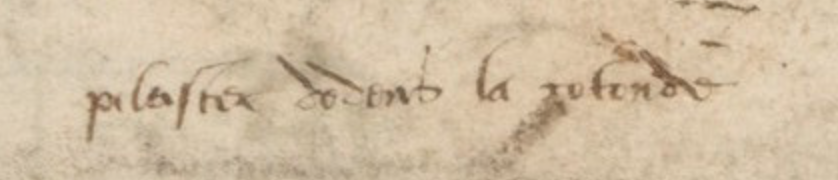 pilaster dedens la rotonde